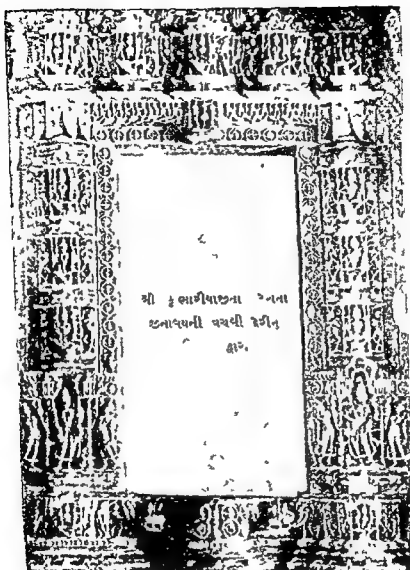 શ્રી કુંભારીયાજીના
જીનાલયની વચલી દેરીનુ
દ્વાર.